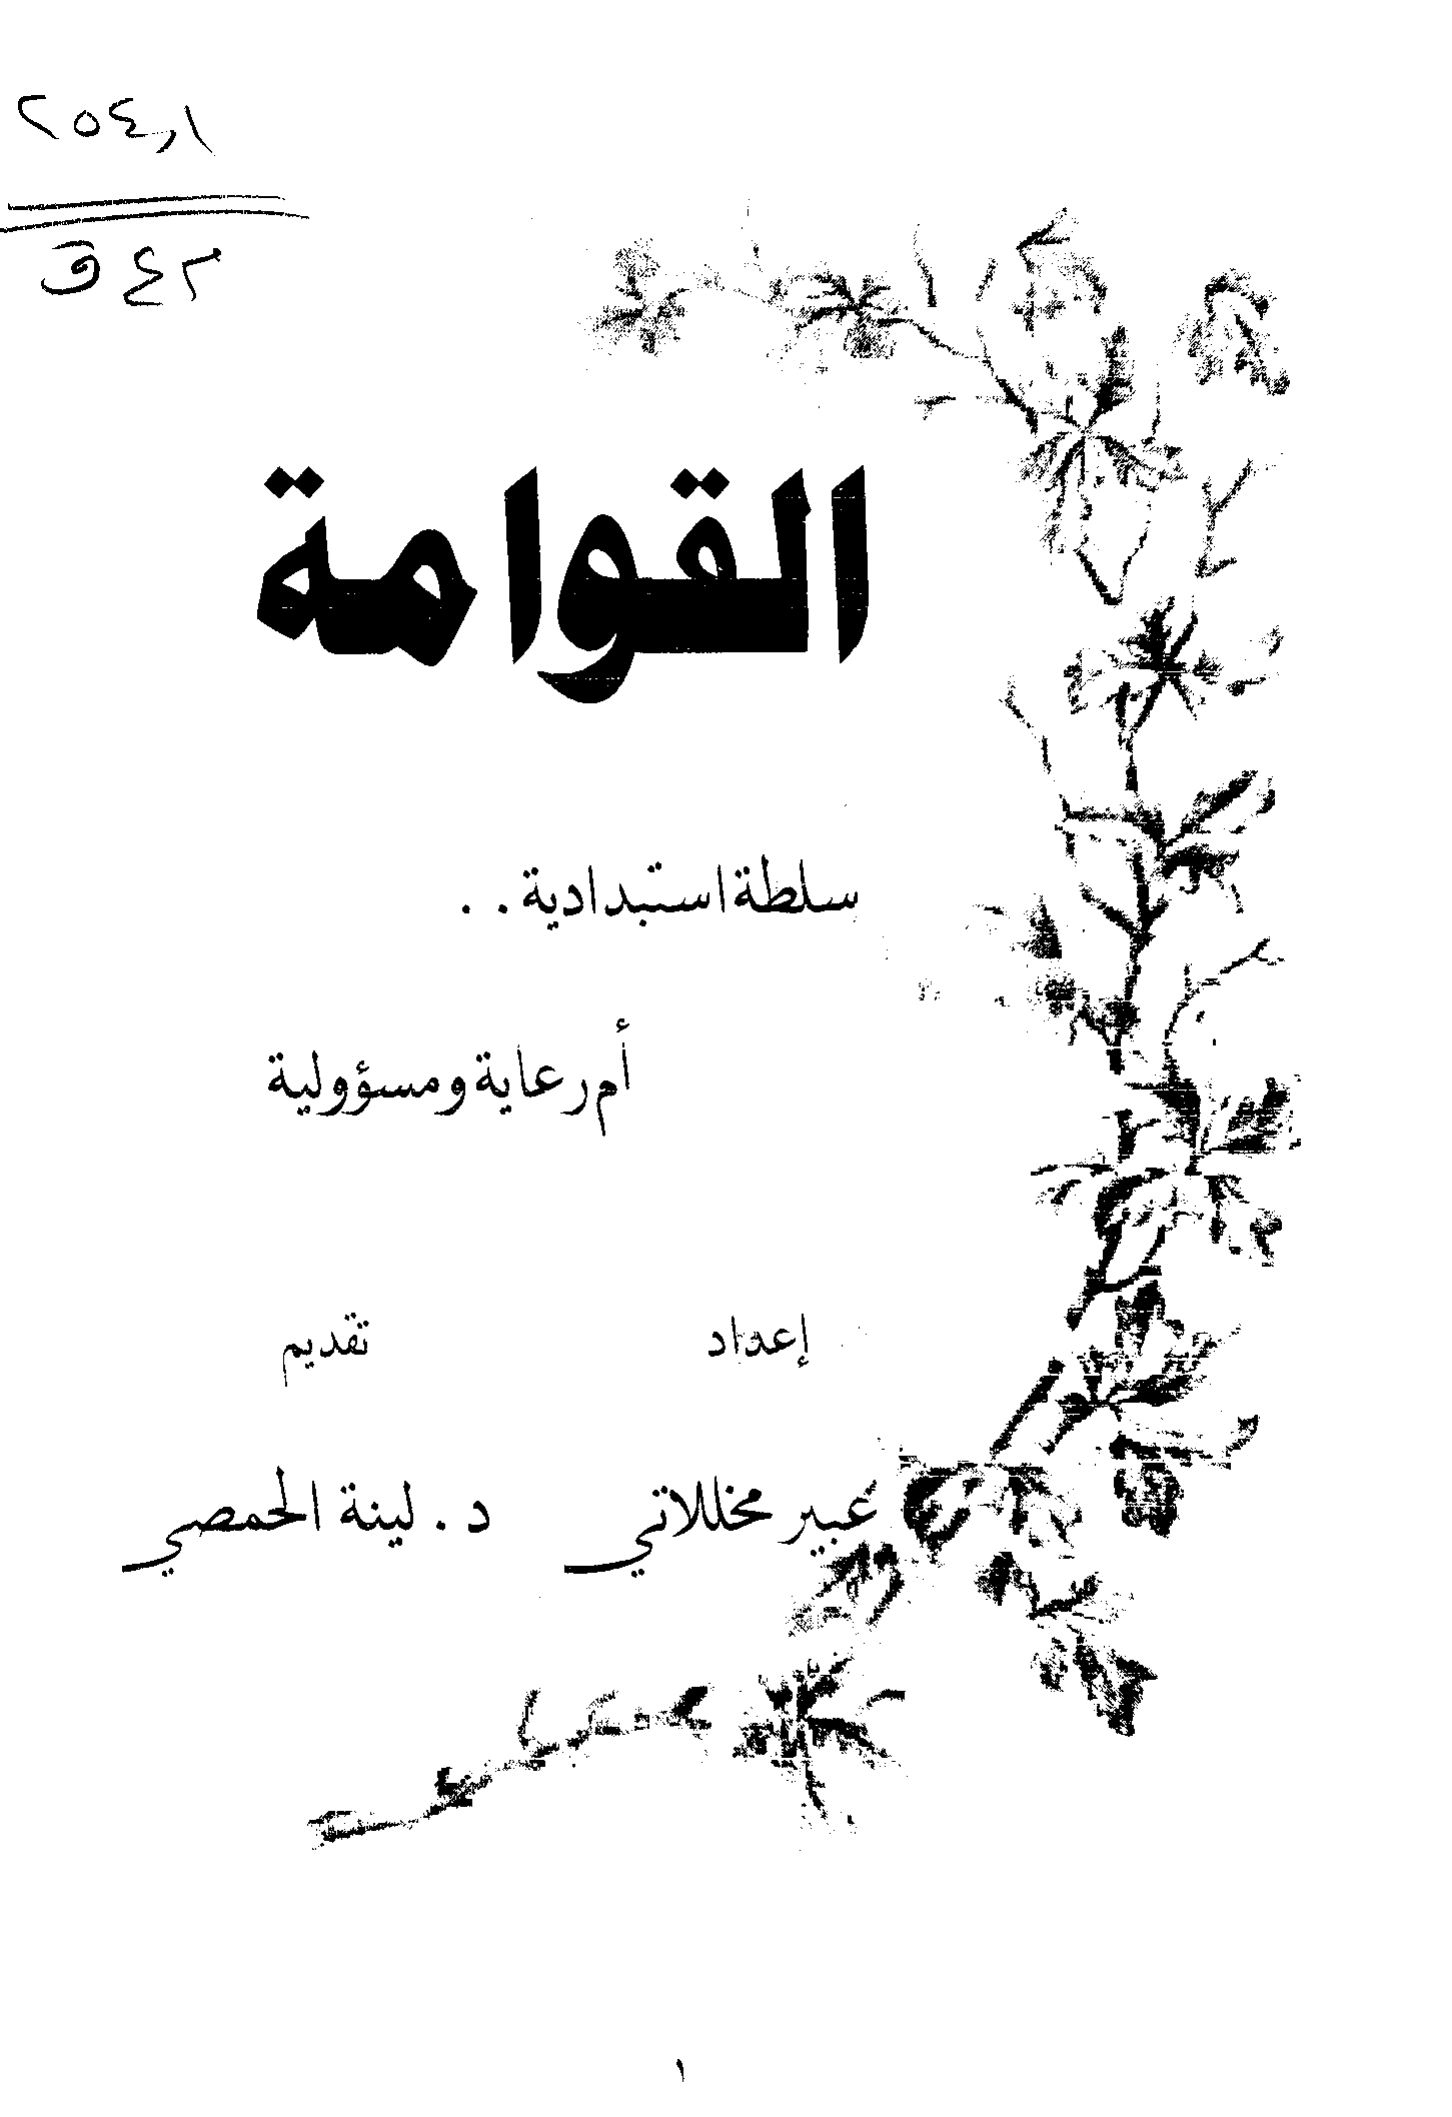 ٢٥٤,١
ق ٤٢
القوامة
سلطة استبدادية . .
أم رعاية ومسؤولية
إعداد
تقديم
عبير مخللاتي
د . لينة الحمصي
١